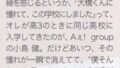 縁を感じるというか、「大橋くんに
憧れて、この学校にしました」って、
オレが高3のときに同じ高校に
入学してきたのが、Aぇ! group
の小島 健。だけどあいつ、その
憧れが一瞬で消えてて、「僕そん